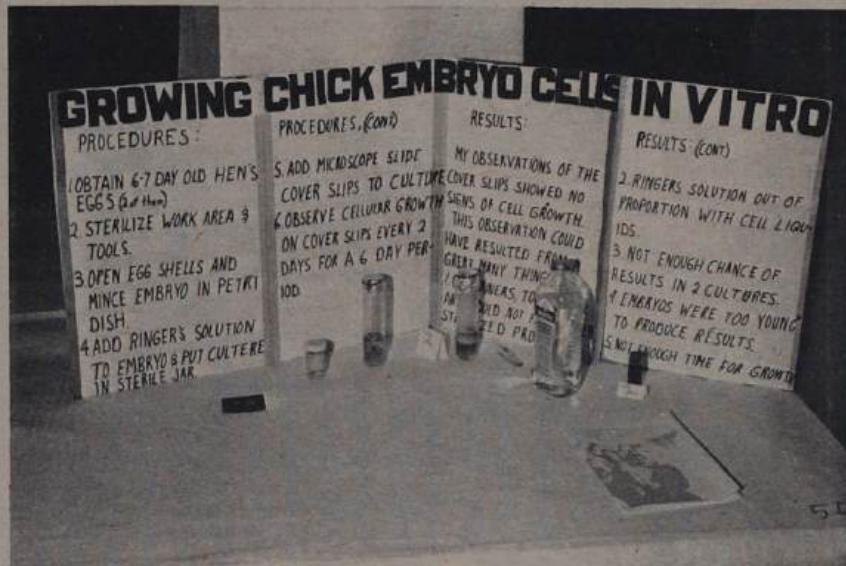 GROWING CHICK EMBRYO CELLS IN VITRO
PROCEDURES:
1.OBTAIN 6-7 DAY OLD HEN'S
EGGS (2 of them)
2. STERILIZE WORK AREA &
TOOLS.
3.OPEN EGG SHELLS AND
MINCE EMBRYO IN PETRI
DISH.
4.ADD RINGER'S SOLUTION
TO EMBRYO & PUT CULTERE
IN STERILE JAR.
PROCEDURES, (CONT)
5. ADD MICROSCOPE SLIDE
COVER SLIPS TO CULTURE
6.OBSERVE CELLULAR GROWTH
ON COVER SLIPS EVERY 2
DAYS FOR A 6 DAY PER-
IOD.
RESULTS:
MY OBSERVATIONS OF THE
COVER SLIPS SHOWED NO
SIGNS OF CELL GROWTH.
THIS OBSERVATION COULD
HAVE RESULTED FROM A
GREAT MANY THING
1.
NOT
RESULTS: (CONT)
2. RINGERS SOLUTION OUT OF
PROPORTION WITH CELL LIQU-
IDS.
3. NOT ENOUGH CHANCE OF
RESULTS IN 2 CULTURES.
4. EMBRYOS WERE TOO YOUNG
TO PRODUCE RESULTS.
5.NOT ENOUGH TIME FOR GROWTH